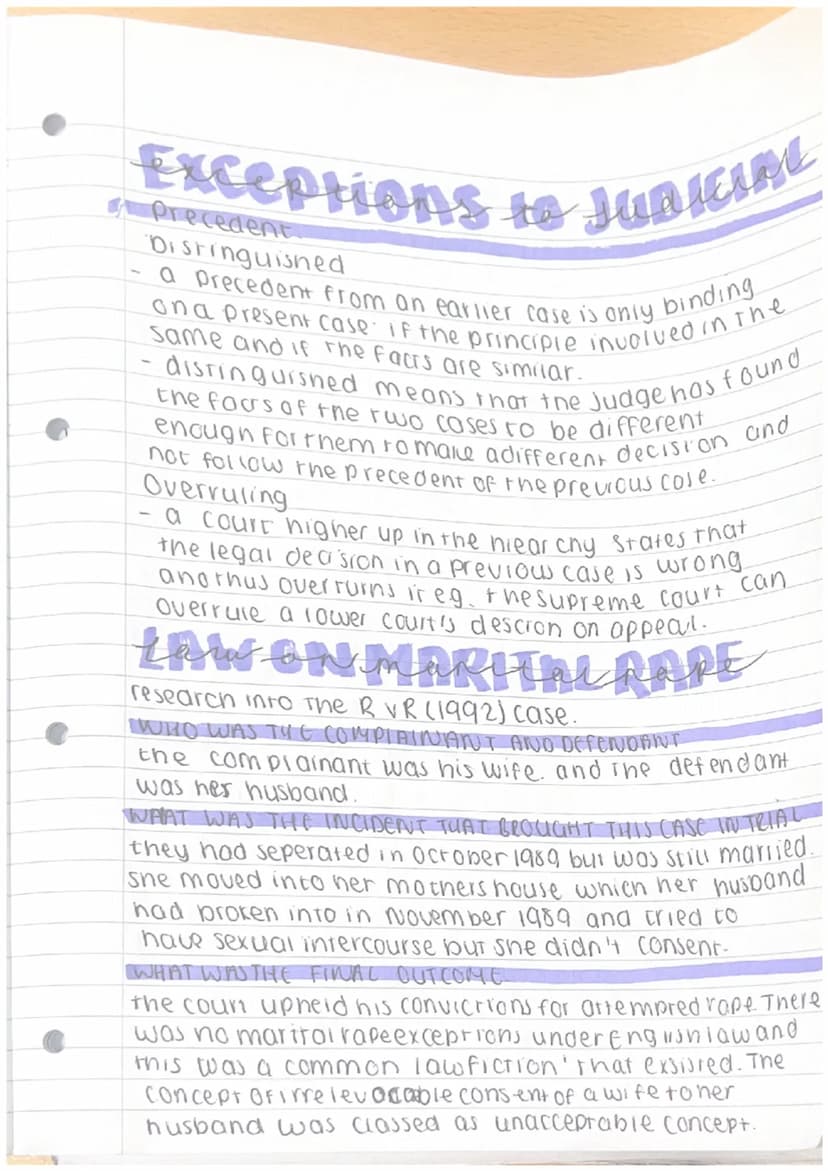 Exceptions to Judicial
Precedent.
Distinguished
- a precedent from an earlier case is only binding
on a present case if the principle involved in the
same and if the facts are similar.
- distinguished means that the judge has found
the facts of the two cases to be different
enough for them to make a different decision and
not follow the precedent of the previous case.
Overruling
- a court higher up in the hierarchy states that
the legal decision in a previous case is wrong
and thus overturns it eg. the supreme court can
overrule a lower court's descion on appeal.
LAW ON MARITAL RAPE
research into the R v R (1992) case.
WHO WAS THE COMPLAINANT AND DEFENDANT
the complainant was his wife. and the defendant
was her husband.
WHAT WAS THE INCIDENT THAT BROUGHT THIS CASE IN TRIAL
they had seperated in October 1989 but was still married.
she moved into her mothers house which her husband
had broken into in November 1989 and tried to
have sexual intercourse but she didn't consent.
WHAT WAS THE FINAL OUTCOME
the court upheld his convictions for attempted rape. There
was no marital rape exceptions under English law and
this was a common law fiction' that exsisted. The
concept of irrelevocable consent of a wife to her
husband was classed as unacceptable concept.